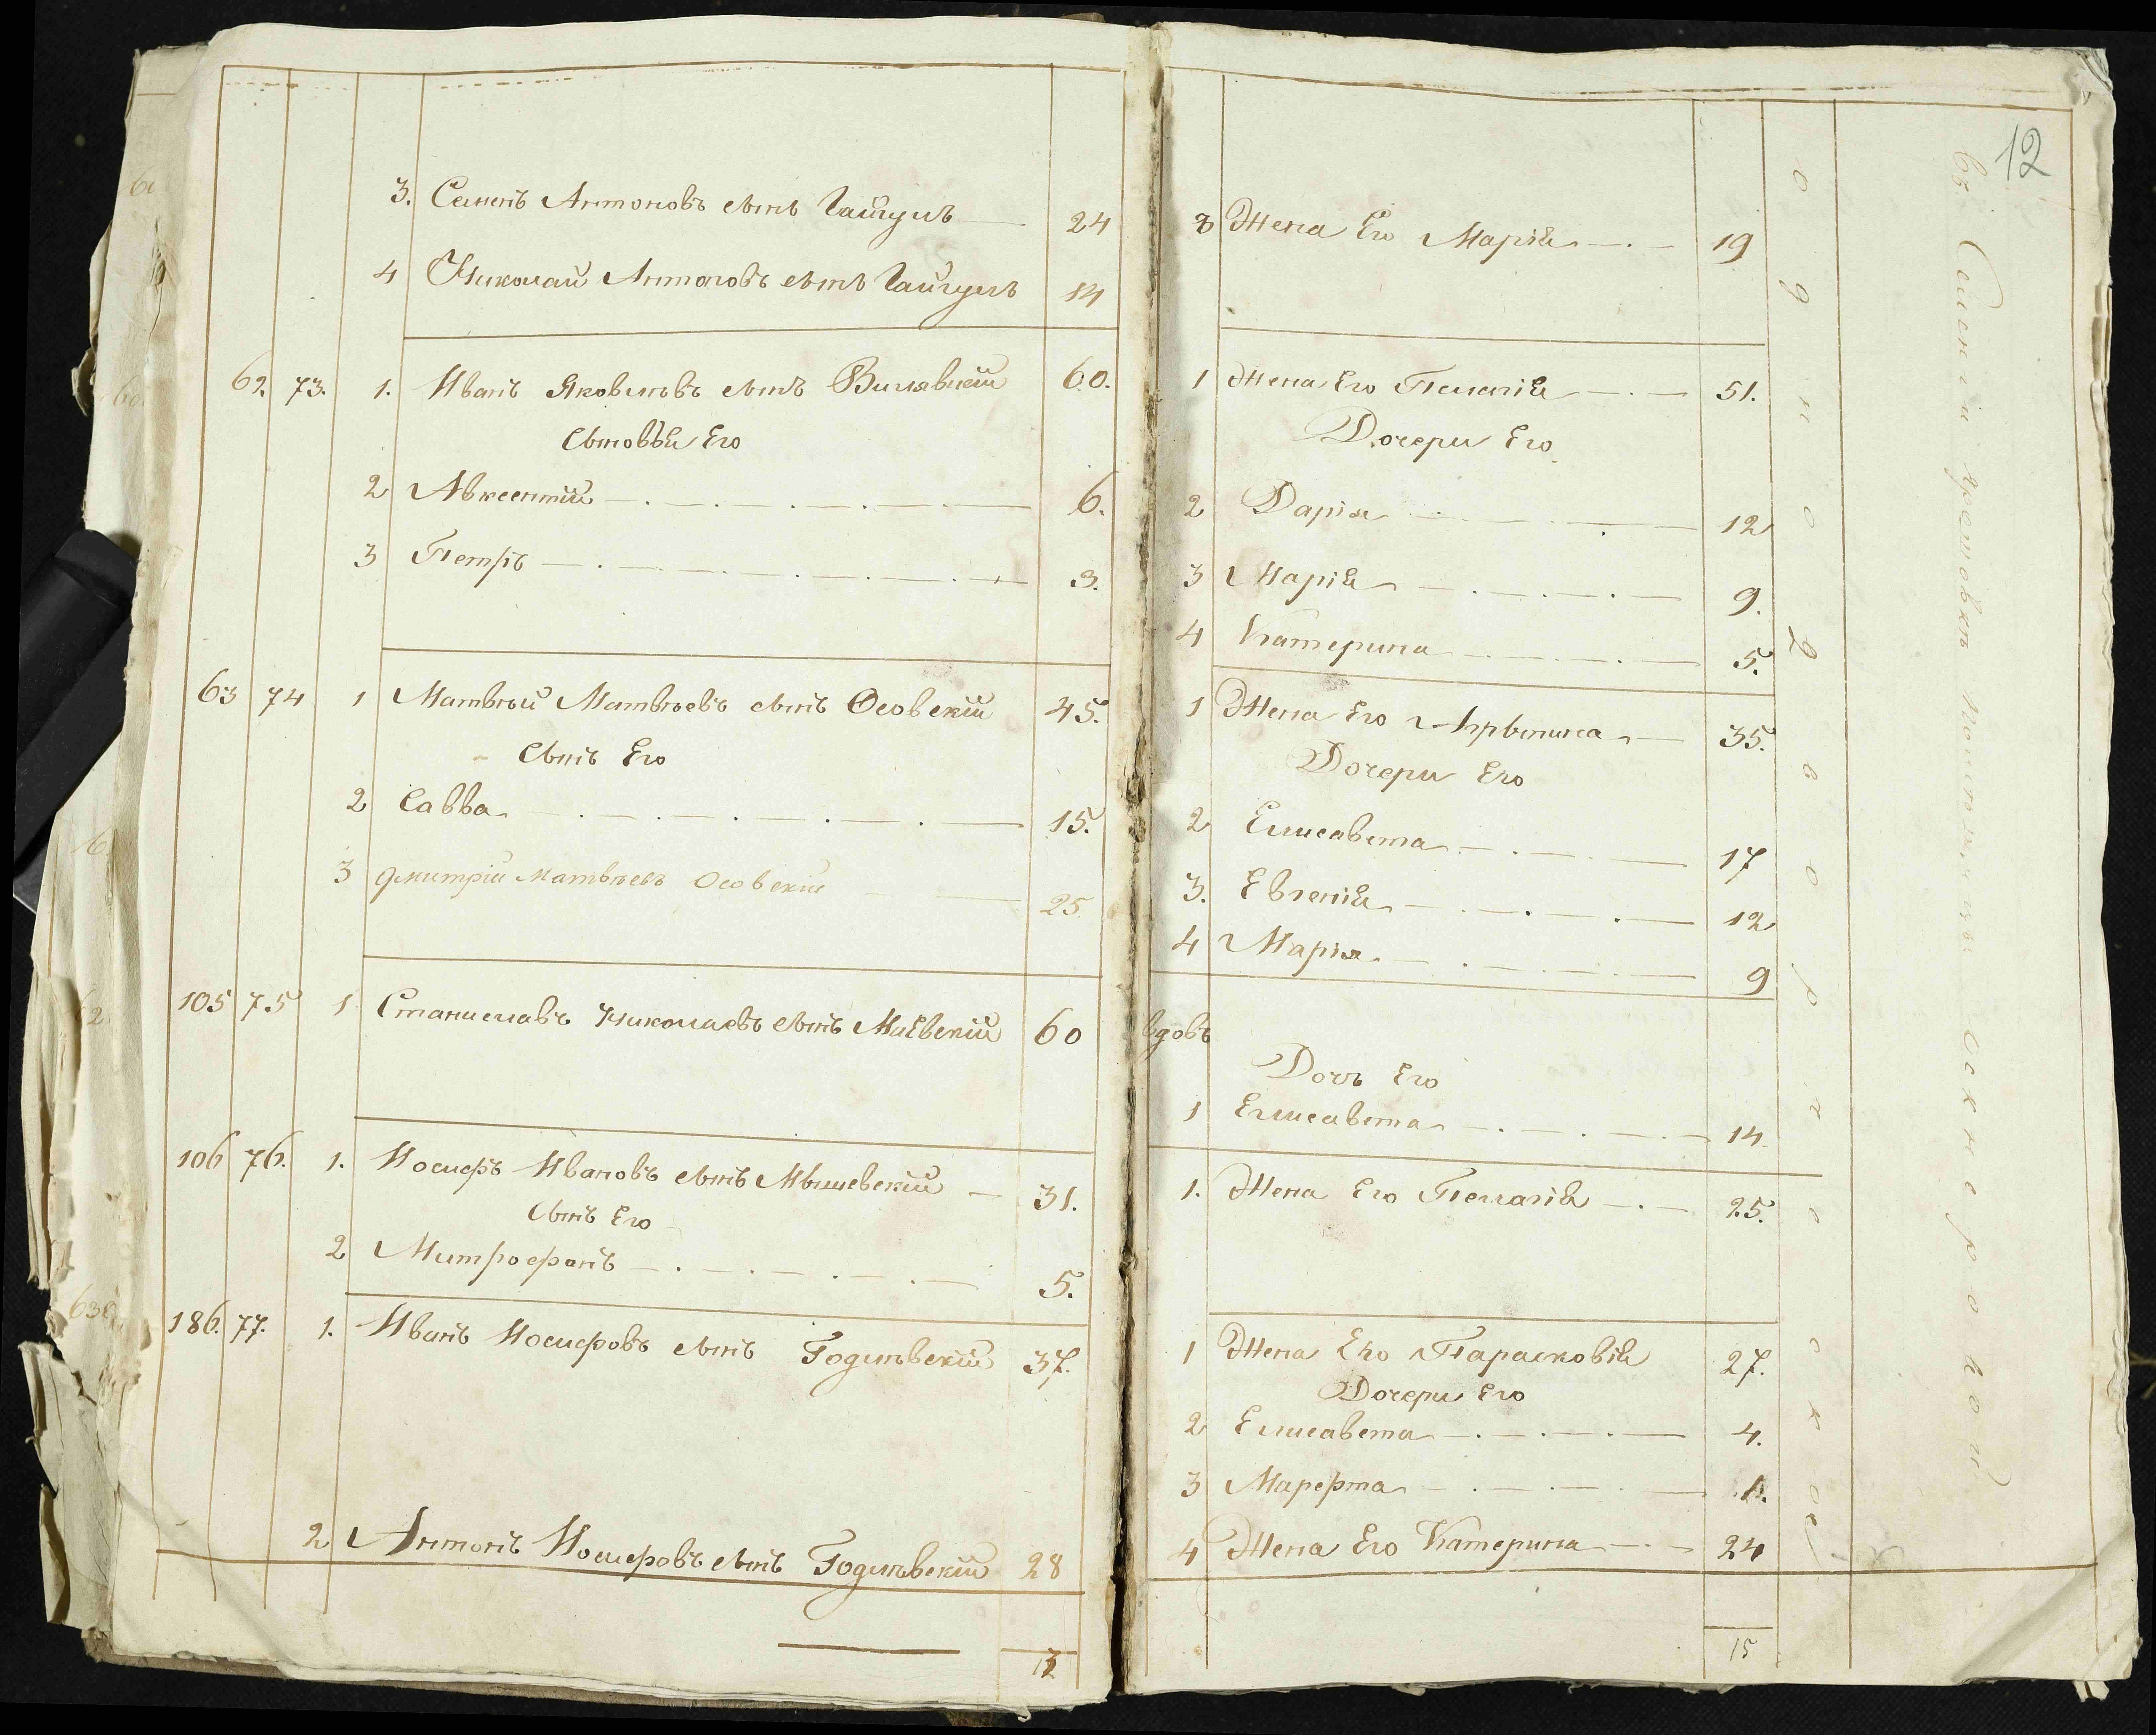 3. Семенъ Антоновъ сынъ Гайгулъ 24
4 Николай Антоновъ сынъ Гайгулъ 14
62. 73. 1. Иванъ Яковлевъ сынъ 60.
Сыновья Его
2 Авксентий 6.
3 Петръ 3.
63 74 1 Матвѣй Матвѣевъ сынъ Осовскій 45.
Сынъ Его
2 Савва 15.
3 Дмитрій Матвѣевъ Осовскій 25.
105 75 1 Станиславъ Николаевъ сынъ Маевскій 60
106 76. 1. Иосифъ Ивановъ сынъ Мышевскій 31.
Сынъ Его
2 Митрофанъ 5.
186. 77. 1. Иванъ Иосифовъ сынъ Годлѣвскій 37.
2 Антонъ Иосифовъ сынъ Годлѣвскій 28
12
Жена Его Марія 19
1 Жена Его Пелагія 51.
Дочери Его
2 Дарія 12
3 Марія 9.
4 Катерина 5.
1 Жена Его 35.
Дочери Его
2 Елисавета 17
3. Евгенія 12
4 Марія 9
вдовъ
Дочь Его
1 Елисавета 14.
1. Жена Его Пелагія 25.
1 Жена Его Парасковія 27.
Дочери Его
2 Елисавета 4.
3 Марфта 1.
4 Жена Его Катерина 24
15
однодворческое
въ Селеніи помѣщицы